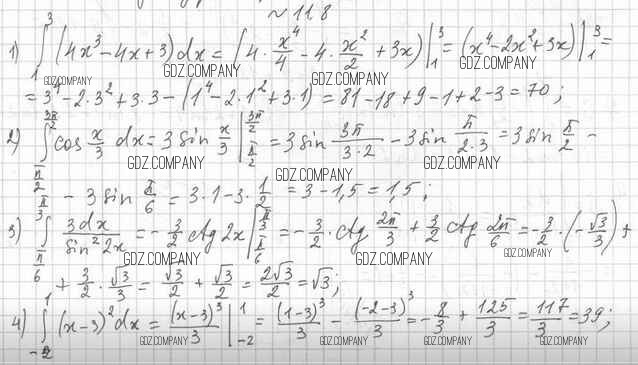 ~ 118
1) ∫₁³ (4x³ - 4x + 3) dx = (4 · x⁴/4 - 4 · x²/2 + 3x) |₁³ = (x⁴ - 2x² + 3x) |₁³ =
GDZ.COMPANY GDZ.COMPANY GDZ.COMPANY
= 3⁴ - 2·3² + 3·3 - (1⁴ - 2·1² + 3·1) = 81 - 18 + 9 - 1 + 2 - 3 = 70 ;
2) ∫_{π/2}^{3π/2} cos x/3 dx = 3 sin x/3 |_{π/2}^{3π/2} = 3 sin 3π/(3·2) - 3 sin π/(2·3) = 3 sin π/2 -
GDZ.COMPANY GDZ.COMPANY GDZ.COMPANY
- 3 sin π/6 = 3·1 - 3·1/2 = 3 - 1,5 = 1,5 ;
3) ∫_{π/6}^{π/3} 3dx/sin² 2x = -3/2 ctg 2x |_{π/6}^{π/3} = -3/2 · ctg 2π/3 + 3/2 ctg 2π/6 = -3/2 · (-√3/3) +
GDZ.COMPANY GDZ.COMPANY GDZ.COMPANY
+ 3/2 · √3/3 = √3/2 + √3/2 = 2√3/2 = √3 ;
4) ∫₋₂¹ (x-3)² dx = (x-3)³/3 |₋₂¹ = (1-3)³/3 - (-2-3)³/3 = -8/3 + 125/3 = 117/3 = 39 ;
GDZ.COMPANY GDZ.COMPANY GDZ.COMPANY GDZ.COMPANY